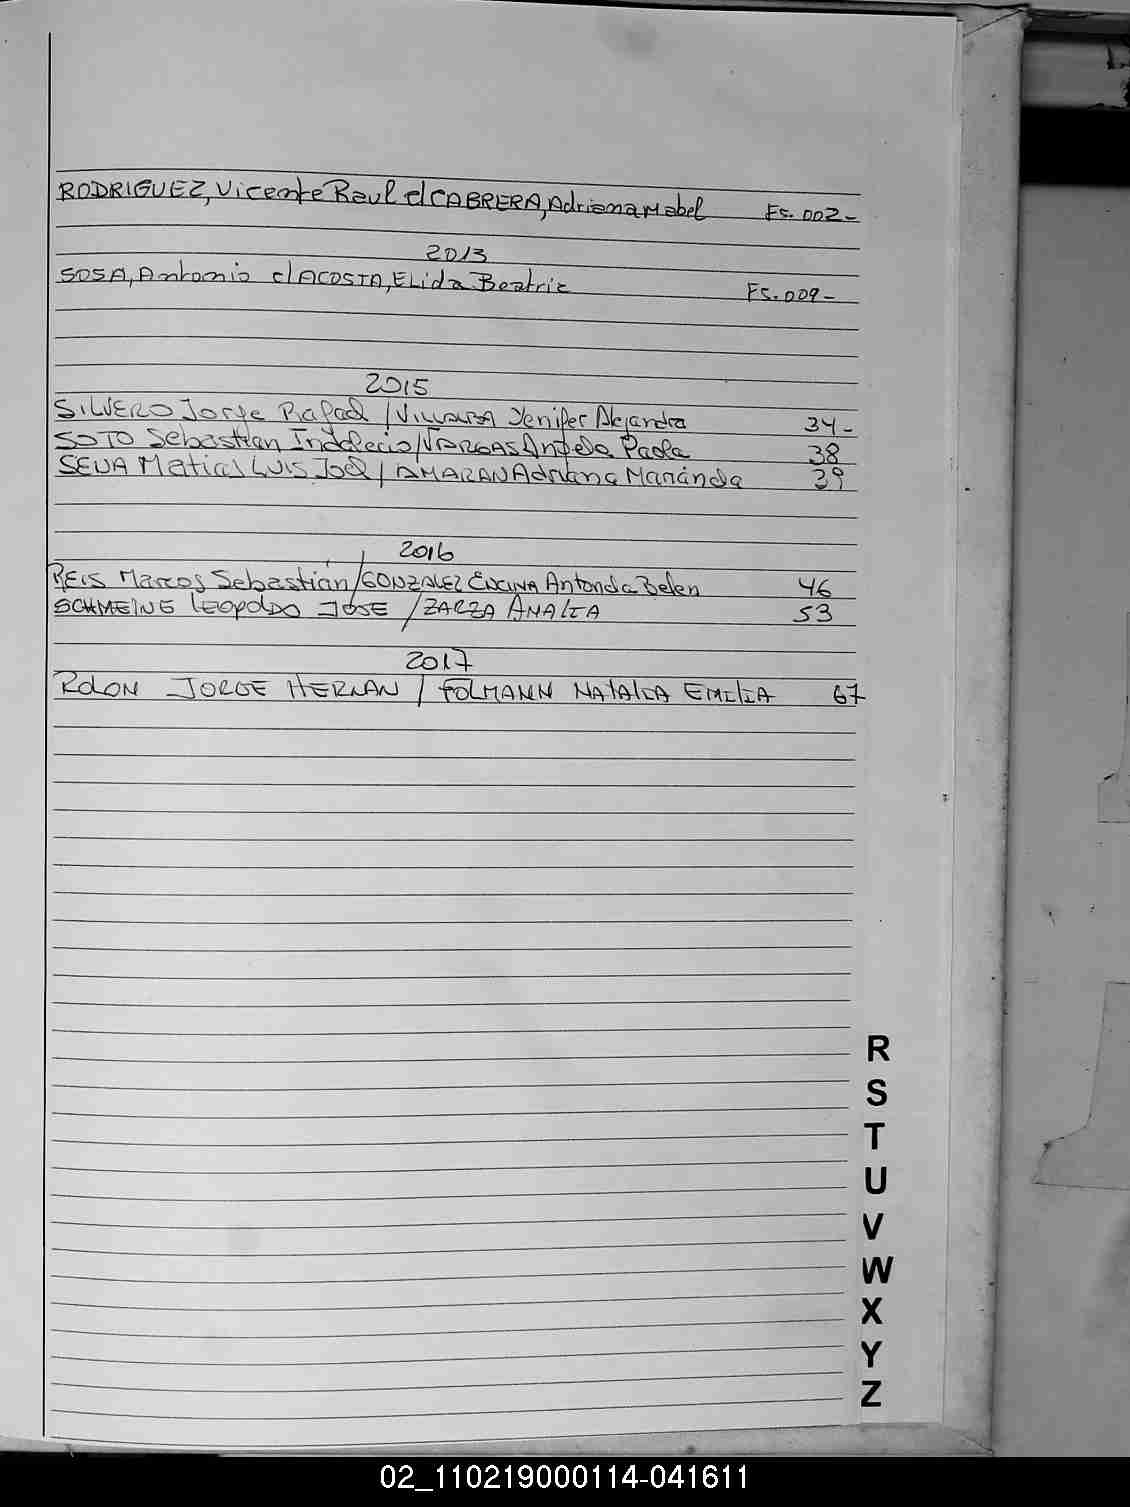 RODRIGUEZ, Vicente Raul c/CABRERA, Adriana Mabel Fs. 002-
2013
SOSA, Antonio c/ACOSTA, ELida Beatriz Fs. 009-
2015
SILVERO Jorge Rafael / VILLALBA Yenifer Alejandra 34-
SOTO Sebastian Indalecio / VARGAS Angela Paola 38
Matias LUIS Joel / Adriana 39
2016
REIS Marcos Sebastián / GONZALEZ ENCINA Antonela Belen 46
LEOPOLDO JOSE / ZARZA ANALIA 53
2017
ROLON JORGE HERNAN / FOLMANN NATALIA EMILIA 67
R
S
T
U
V
W
X
Y
Z
02_110219000114-041611